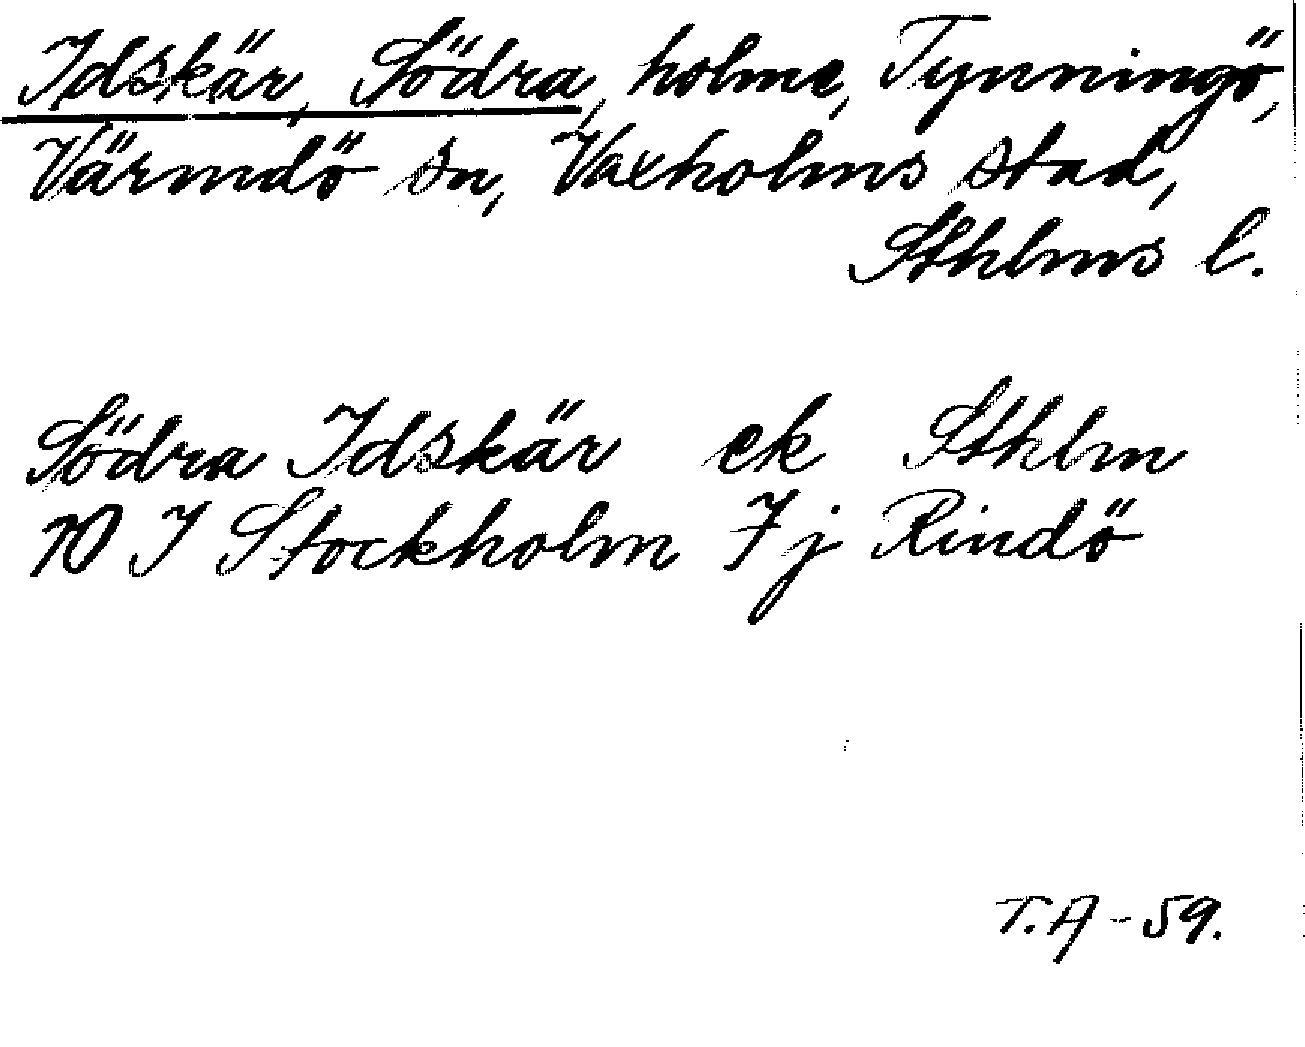 Idskär, Södra, holme, Tynningö,
Värmdö sn, Vaxholms stad,
Sthlms l.
Södra Idskär ek Sthlm
10 I Stockholm 7j Rindö
T.A-59.